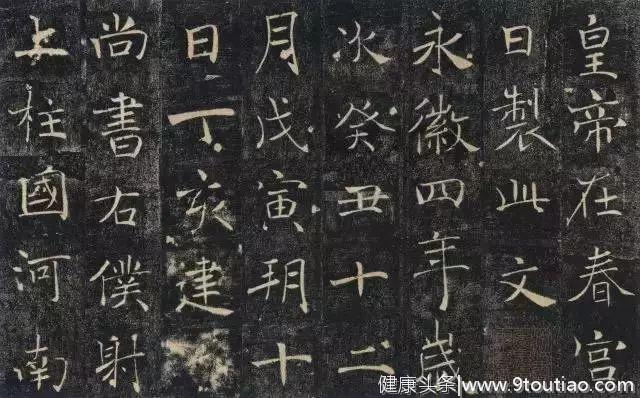 皇帝在春宮
日製此文
永徽四年歲
次癸丑十二
月戊寅朔十
日丁亥建
尚書右僕射
上柱國河南
健康头条|www.9toutiao.com